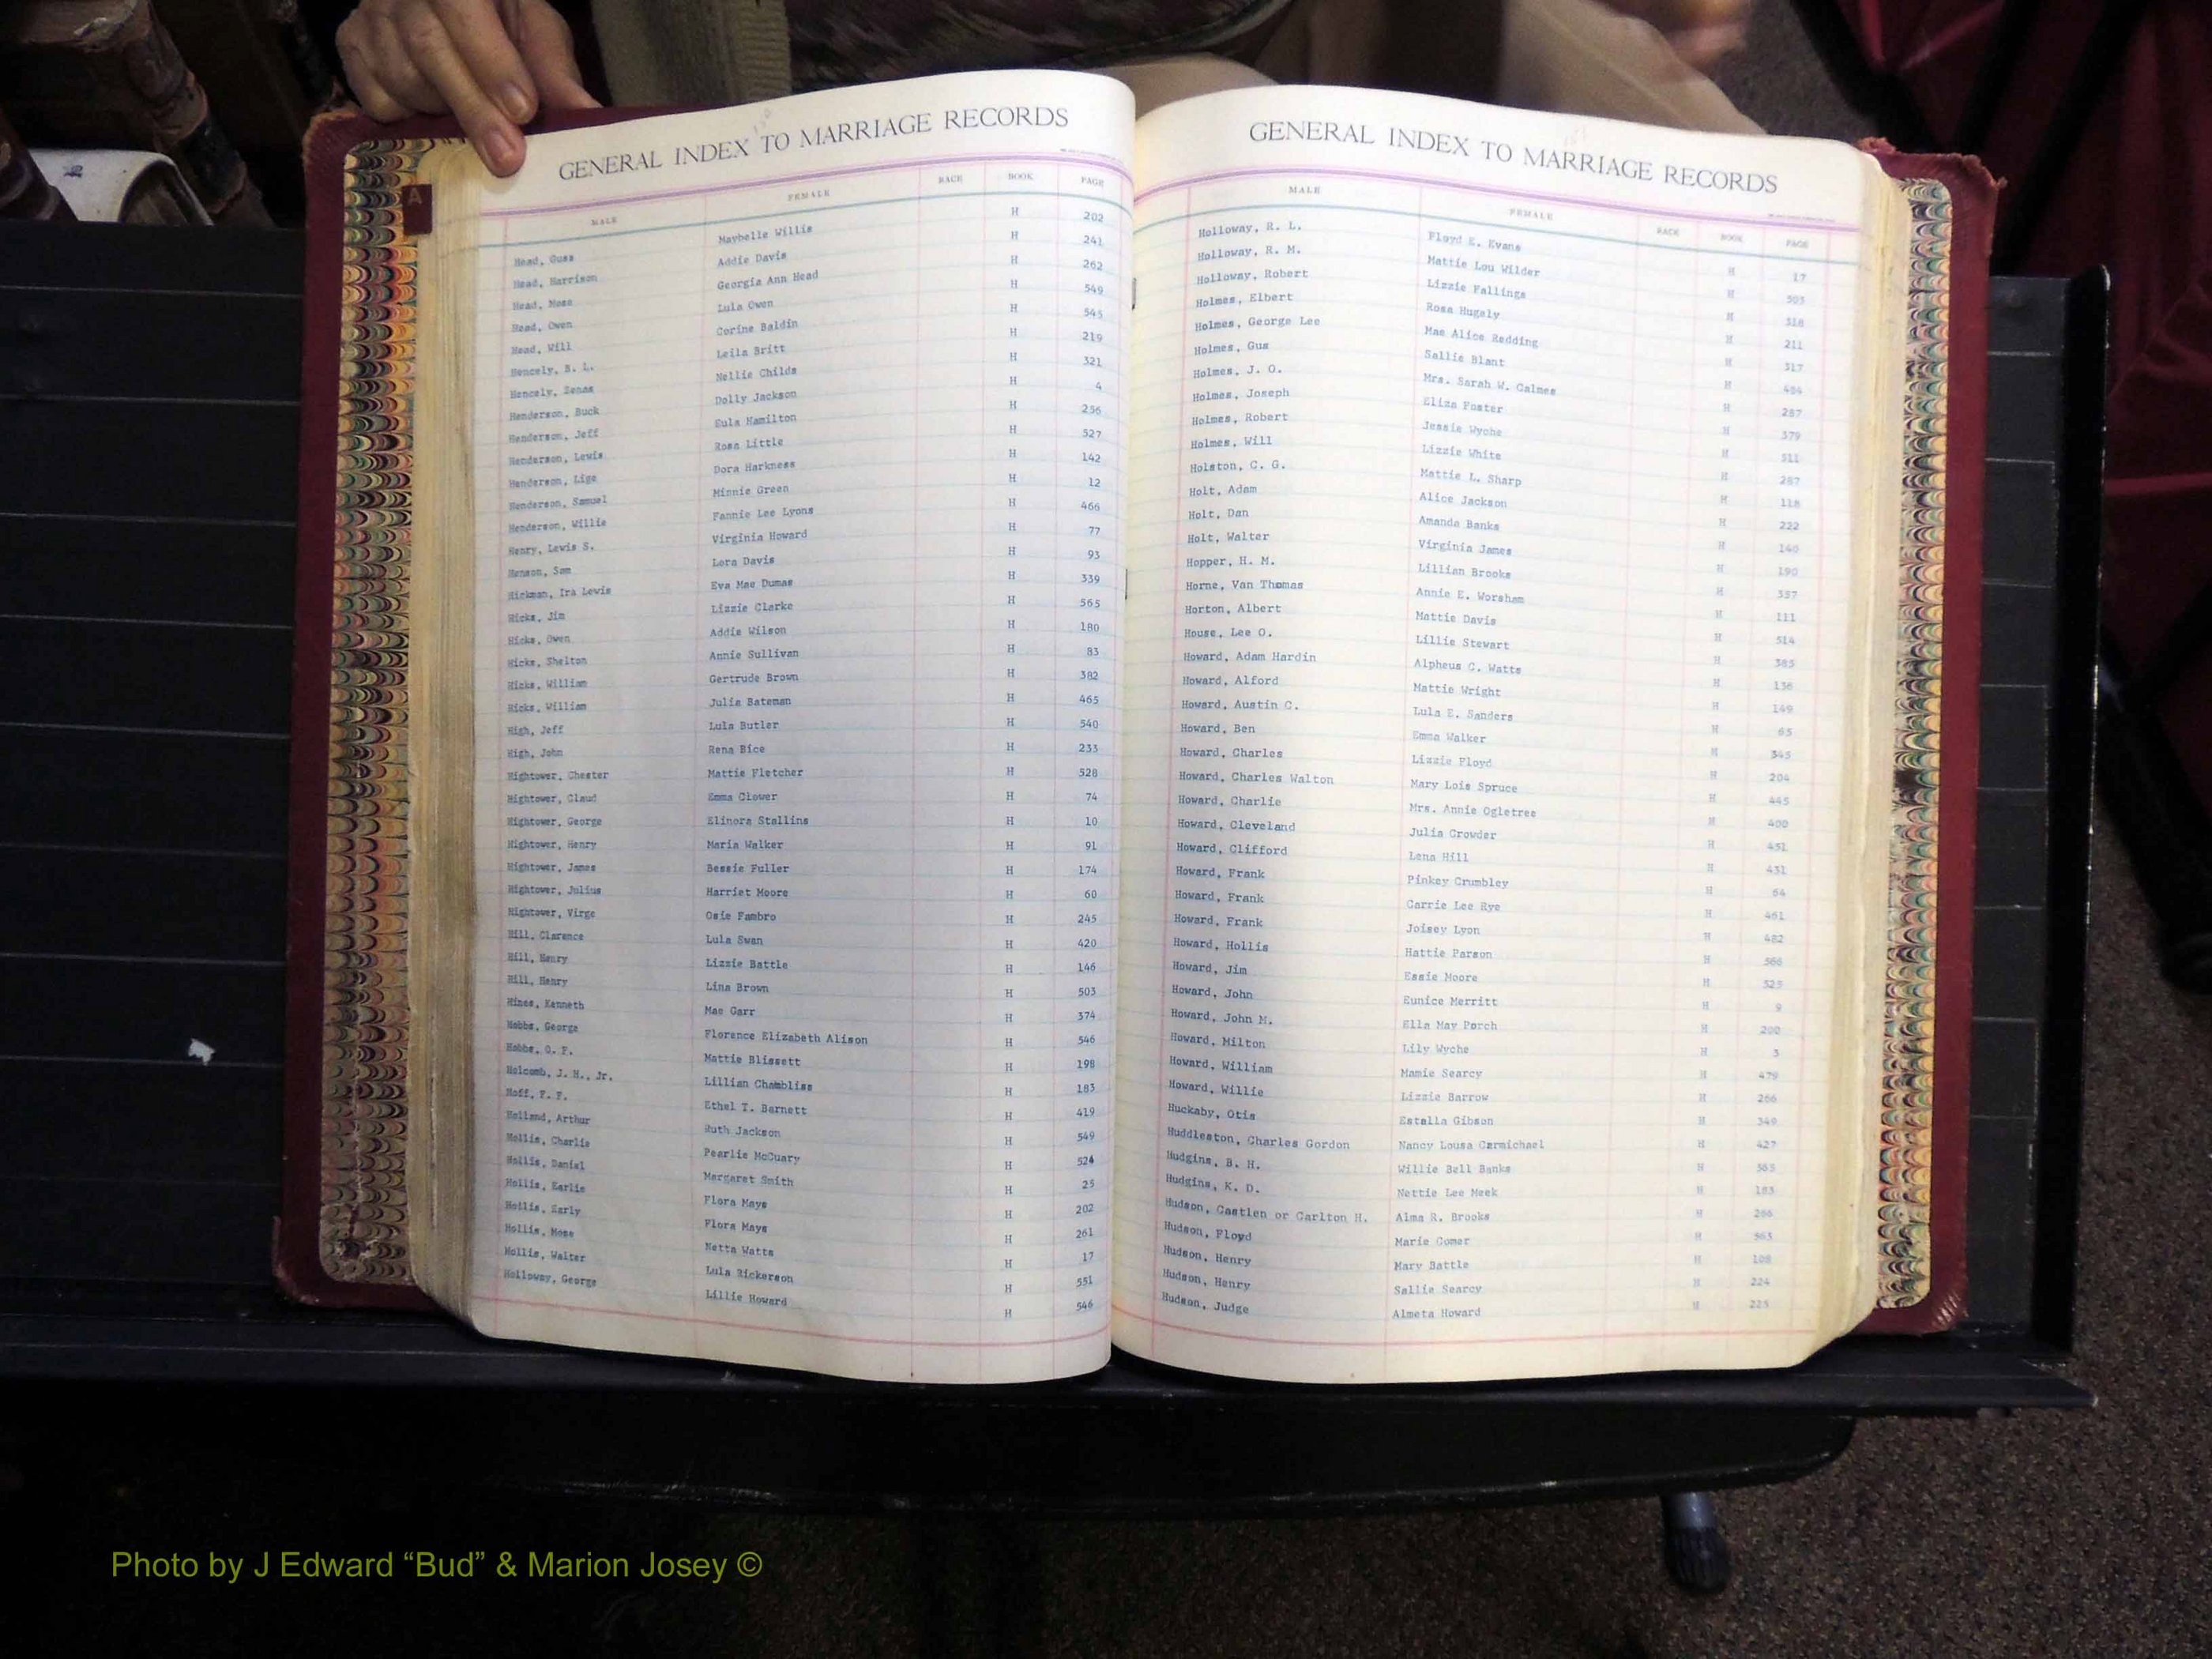 GENERAL INDEX TO MARRIAGE RECORDS
MALE FEMALE RACE BOOK PAGE
Head, Guss Maybelle Willis H 202
Head, Harrison Addie Davis H 241
Head, Mose Georgia Ann Head H 262
Head, Owen Lula Owen H 549
Head, Will Corine Baldin H 545
Hencely, B. L. Leila Britt H 219
Hencely, Zenas Nellie Childs H 321
Henderson, Buck Dolly Jackson H 4
Henderson, Jeff Eula Hamilton H 236
Henderson, Lewis Rosa Little H 527
Henderson, Lige Dora Harkness H 142
Henderson, Samuel Minnie Green H 12
Henderson, Willie Fannie Lee Lyons H 466
Henry, Lewis S. Virginia Howard H 77
Henson, Sam Lora Davis H 93
Hickman, Ira Lewis Eva Mae Dumas H 339
Hicks, Jim Lizzie Clarke H 565
Hicks, Owen Addie Wilson H 180
Hicks, Shelton Annie Sullivan H 83
Hicks, William Gertrude Brown H 382
Hicks, William Julia Bateman H 465
High, Jeff Lula Butler H 540
High, John Rena Bice H 233
Hightower, Chester Mattie Fletcher H 528
Hightower, Claud Emma Clower H 74
Hightower, George Elinora Stallins H 10
Hightower, Henry Maria Walker H 91
Hightower, James Bessie Fuller H 174
Hightower, Julius Harriet Moore H 60
Hightower, Virge Osie Fambro H 245
Hill, Clarence Lula Swan H 420
Hill, Henry Lizzie Battle H 146
Hill, Henry Lina Brown H 503
Hines, Kenneth Mae Garr H 374
Hobbs, George Florence Elizabeth Alison H 546
Hobbs, O. F. Mattie Blissett H 198
Holcomb, J. H., Jr. Lillian Chambliss H 183
Hoff, F. F. Ethel T. Barnett H 419
Holland, Arthur Ruth Jackson H 549
Hollis, Charlie Pearlie McCuary H 524
Hollis, Daniel Margaret Smith H 25
Hollis, Earlie Flora Mays H 202
Hollis, Early Flora Mays H 261
Hollis, Mose Netta Watts H 17
Hollis, Walter Lula Rickerson H 551
Holloway, George Lillie Howard H 546
GENERAL INDEX TO MARRIAGE RECORDS
MALE FEMALE RACE BOOK PAGE
Holloway, R. L. Floyd E. Evans H 17
Holloway, R. M. Mattie Lou Wilder H 503
Holloway, Robert Lizzie Fallings H 318
Holmes, Elbert Rosa Hugely H 211
Holmes, George Lee Mae Alice Redding H 317
Holmes, Gus Sallie Blant H 484
Holmes, J. O. Mrs. Sarah W. Calmes H 287
Holmes, Joseph Eliza Foster H 379
Holmes, Robert Jessie Wyche H 511
Holmes, Will Lizzie White H 287
Holston, C. G. Mattie L. Sharp H 118
Holt, Adam Alice Jackson H 222
Holt, Dan Amanda Banks H 140
Holt, Walter Virginia James H 190
Hopper, H. M. Lillian Brooks H 357
Horne, Van Thomas Annie E. Worsham H 111
Horton, Albert Mattie Davis H 514
House, Lee O. Lillie Stewart H 385
Howard, Adam Hardin Alpheus C. Watts H 136
Howard, Alford Mattie Wright H 149
Howard, Austin C. Lula E. Sanders H 65
Howard, Ben Emma Walker H 345
Howard, Charles Lizzie Floyd H 204
Howard, Charles Walton Mary Lois Spruce H 445
Howard, Charlie Mrs. Annie Ogletree H 400
Howard, Cleveland Julia Crowder H 451
Howard, Clifford Lena Hill H 431
Howard, Frank Pinkey Crumbley H 64
Howard, Frank Carrie Lee Rye H 461
Howard, Frank Joisey Lyon H 482
Howard, Hollis Hattie Parson H 566
Howard, Jim Essie Moore H 525
Howard, John Eunice Merritt H 9
Howard, John M. Ella May Porch H 200
Howard, Milton Lily Wyche H 3
Howard, William Mamie Searcy H 479
Howard, Willie Lizzie Barrow H 266
Huckaby, Otis Estalla Gibson H 349
Huddleston, Charles Gordon Nancy Lousa Carmichael H 427
Hudgins, B. H. Willie Bell Banks H 565
Hudgins, K. D. Nettie Lee Meek H 183
Hudson, Castlen or Carlton H. Alma R. Brooks H 266
Hudson, Floyd Marie Comer H 563
Hudson, Henry Mary Battle H 108
Hudson, Henry Sallie Searcy H 224
Hudson, Judge Almeta Howard H 225
A
Photo by J Edward “Bud” & Marion Josey ©